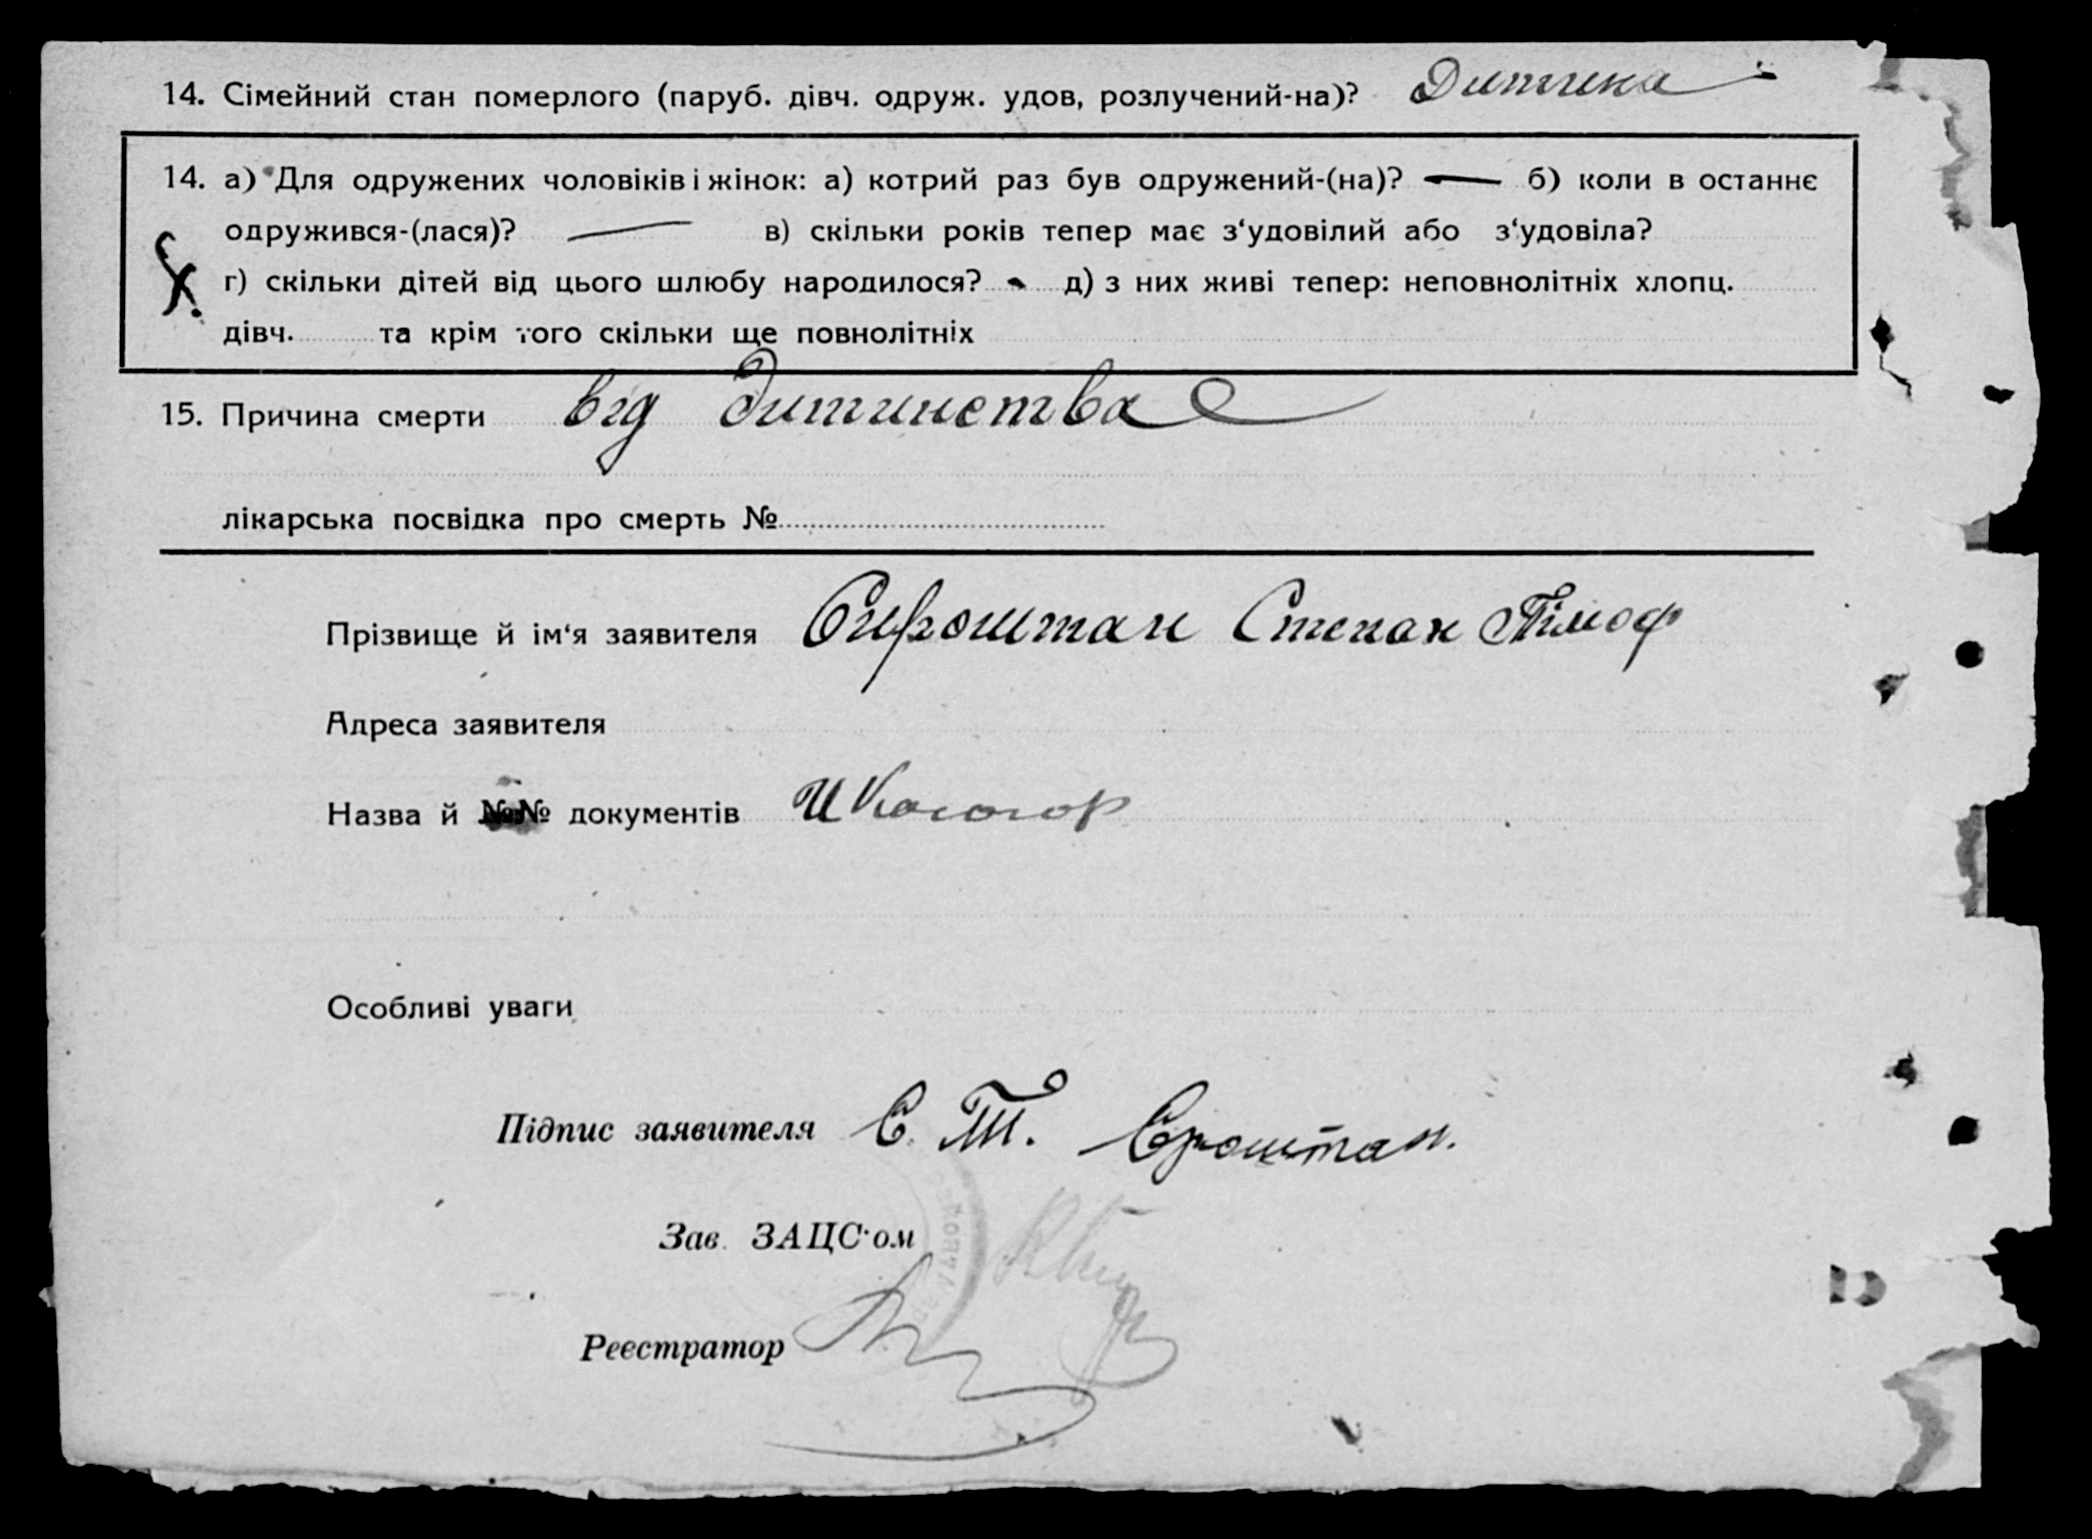 14. Сімейний стан померлого (паруб. дівч. одруж. удов, розлучений-на)? Дитина
14. а) Для одружених чоловіків і жінок: а) котрий раз був одружений-(на)? — б) коли в останнє
одружився-(лася)? — в) скільки років тепер має з‘удовілий або з‘удовіла?
г) скільки дітей від цього шлюбу народилося? - д) з них живі тепер: неповнолітніх хлопц.
дівч. та крім того скільки ще повнолітніх
15. Причина смерти від дитинства
лікарська посвідка про смерть №
Прізвище й ім‘я заявителя Сироштан Степан Тімоф
Адреса заявителя
Назва й №№ документів
Особливі уваги
Підпис заявителя С. Т. Сроштан.
Зав. ЗАЦС‘ом
Реєстратор